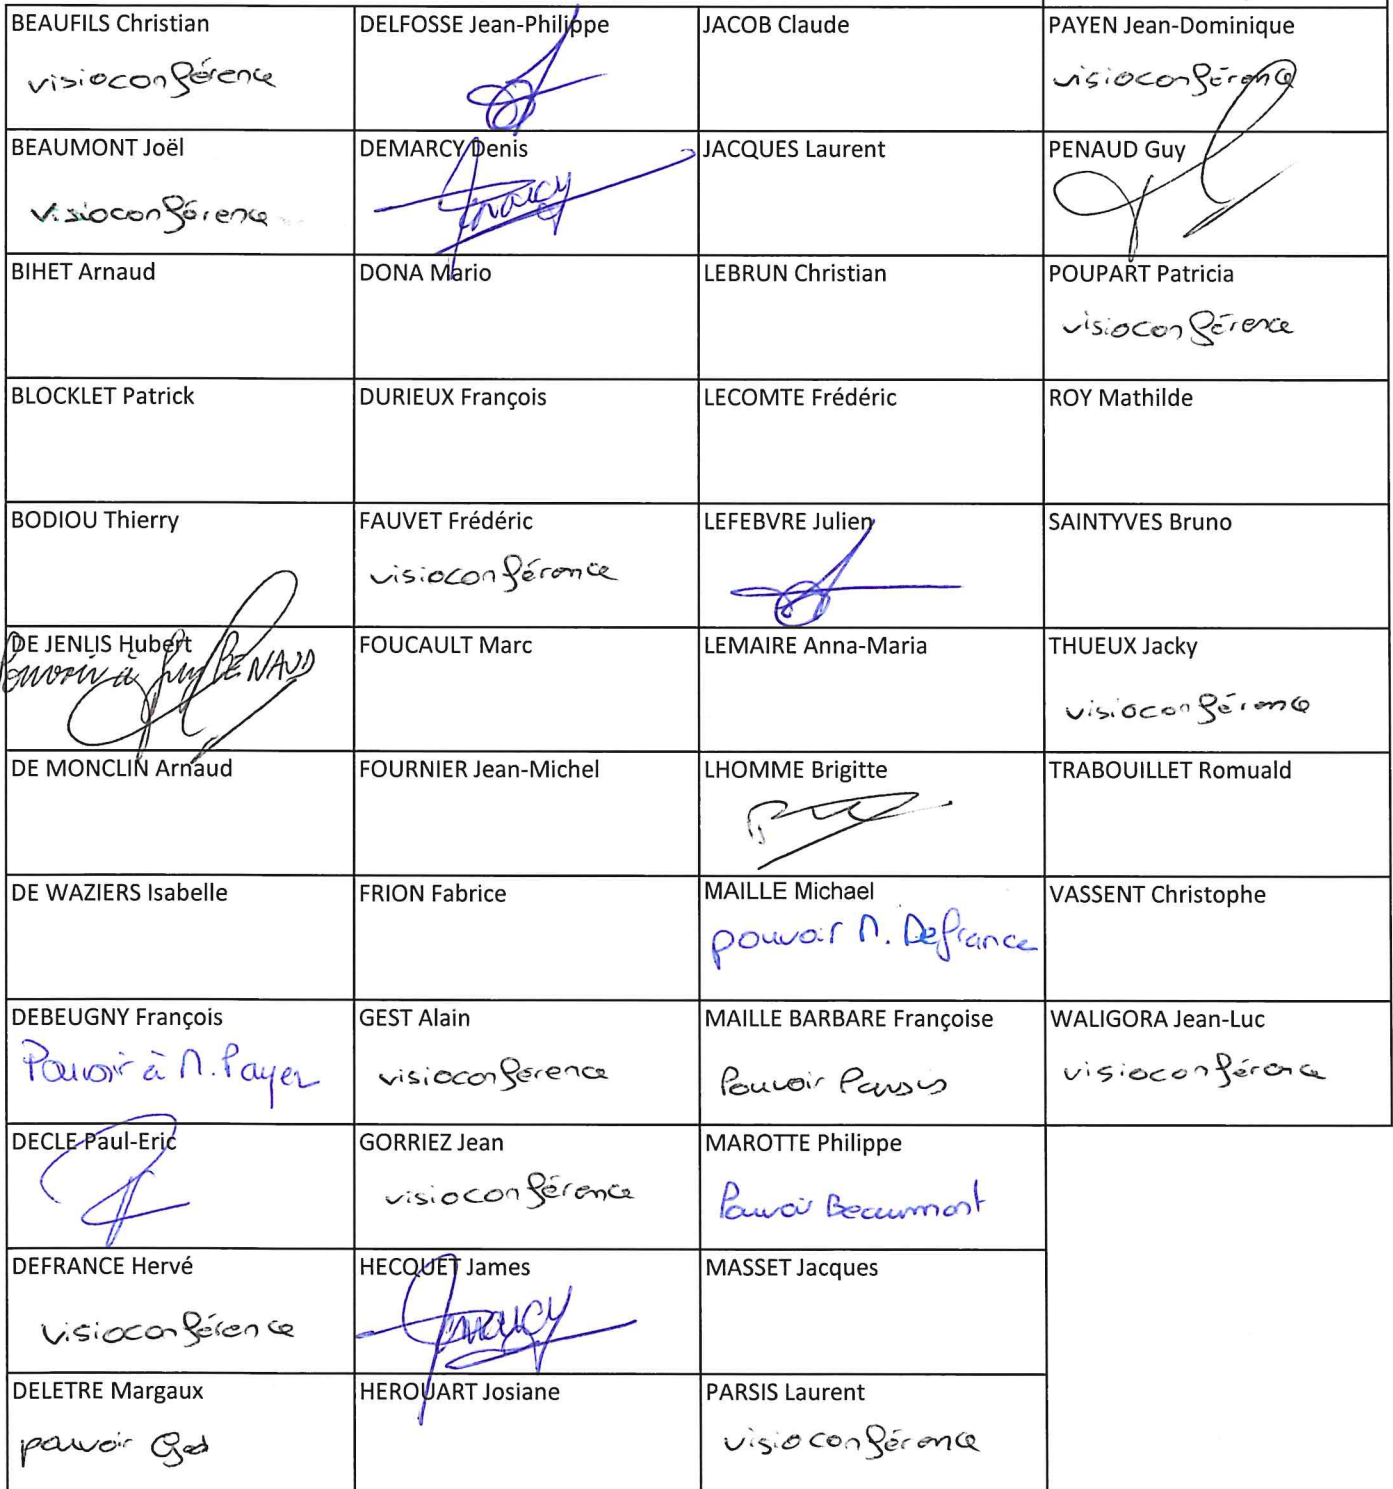 BEAUFILS Christian
visioconférence
DELFOSSE Jean-Philippe
JACOB Claude
PAYEN Jean-Dominique
visioconférence
BEAUMONT Joël
visioconférence
DEMARCY Denis
JACQUES Laurent
PENAUD Guy
BIHET Arnaud
DONA Mario
LEBRUN Christian
POUPART Patricia
visioconférence
BLOCKLET Patrick
DURIEUX François
LECOMTE Frédéric
ROY Mathilde
BODIOU Thierry
FAUVET Frédéric
visioconférence
LEFEBVRE Julien
SAINTYVES Bruno
DE JENLIS Hubert
Pouvoir à Guy PENAUD
FOUCAULT Marc
LEMAIRE Anna-Maria
THUEUX Jacky
visioconférence
DE MONCLIN Arnaud
FOURNIER Jean-Michel
LHOMME Brigitte
TRABOUILLET Romuald
DE WAZIERS Isabelle
FRION Fabrice
MAILLE Michael
pouvoir M. Defrance
VASSENT Christophe
DEBEUGNY François
Pouvoir à M. Payen
GEST Alain
visioconférence
MAILLE BARBARE Françoise
Pouvoir Parsis
WALIGORA Jean-Luc
visioconférence
DECLE Paul-Eric
GORRIEZ Jean
visioconférence
MAROTTE Philippe
Pouvoir Beaumont
DEFRANCE Hervé
visioconférence
HECQUET James
MASSET Jacques
DELETRE Margaux
pouvoir
HEROUART Josiane
PARSIS Laurent
visioconférence